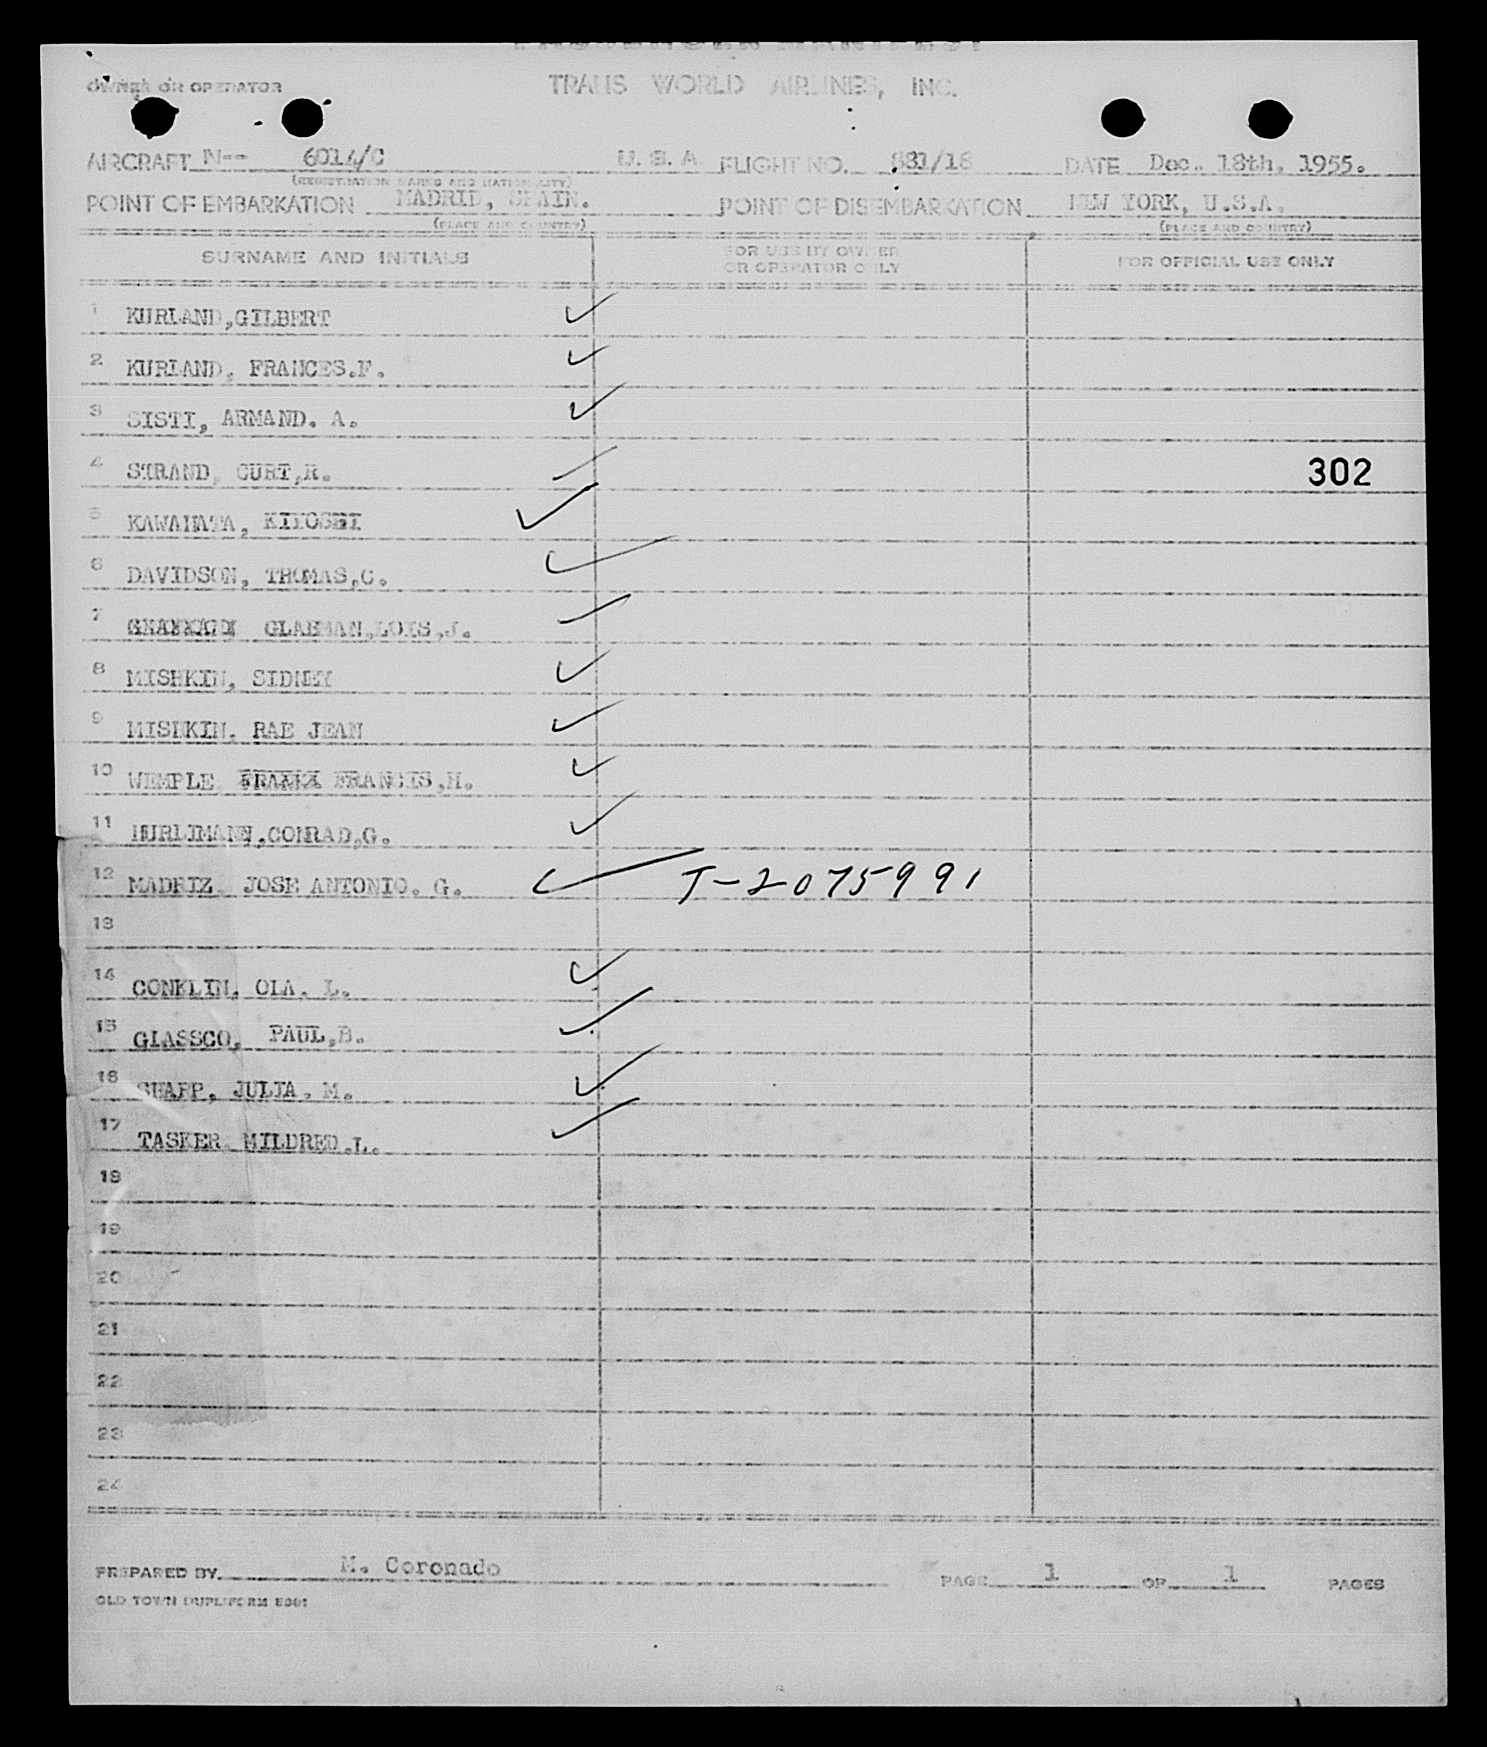 PASSENGER MANIFEST
OWNER OR OPERATOR TRANS WORLD AIRLINES, INC.
AIRCRAFT N-- 6014/C U.S.A. FLIGHT NO. 881/18 DATE Dec. 18th, 1955.
(REGISTRATION MARKS AND NATIONALITY)
POINT OF EMBARKATION MADRID, SPAIN. POINT OF DISEMBARKATION NEW YORK, U.S.A.
(PLACE AND COUNTRY) (PLACE AND COUNTRY)
SURNAME AND INITIALS FOR USE BY OWNER OR OPERATOR ONLY FOR OFFICIAL USE ONLY
1 KURLAND,GILBERT
2 KURLAND, FRANCES.F.
3 SISTI, ARMAND. A.
4 STRAND, CURT,R. 302
5 KAWAHATA, KIYOSHI
6 DAVIDSON, THOMAS,C.
7 GLABMAN,LOIS,J.
8 MISHKIN, SIDNEY
9 MISHKIN, RAE JEAN
10 WEMPLE FRANCIS,H.
11 HURLIMANN,CONRAD,G.
12 MADRIZ, JOSE ANTONIO. G. T-2075991
13
14 CONKLIN, OLA. L.
15 GLASSCO, PAUL,B.
16 SHARP, JULIA. M.
17 TASKER, MILDRED.L.
18
19
20
21
22
23
24
PREPARED BY M. Coronado PAGE 1 OF 1 PAGES
OLD TOWN DUPLIFORM